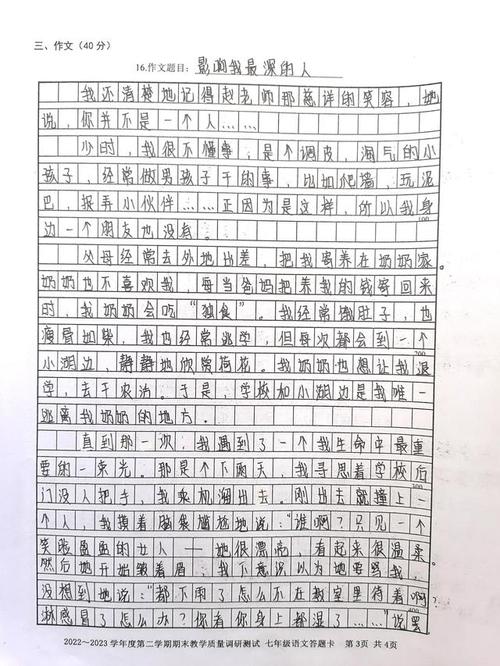 三、作文（40分）
16.作文题目：影响我最深的人
我还清楚地记得赵老师那慈详的笑容，她
说，你并不是一个人……
少时，我很不懂事，是个调皮，淘气的小
孩子，经常做男孩子干的事，比如爬墙，玩泥
巴，捉弄小伙伴……正因为是这样，所以我身
边一个朋友也没有。
父母经常去外地出差，把我寄养在奶奶家。
奶奶也不喜欢我，每当爸妈把养我的钱寄回来
时，我奶奶会吃“独食”。我经常饿肚子，也
瘦骨如柴，我也经常逃学，但每次都会到一个
小湖边，静静地欣常荷花。我奶奶也想让我退
学，去干农活。于是，学校和小湖边是我唯一
逃离我奶奶的地方。
直到那一次，我遇到了一个我生命中最重
要的一束光。那是个下雨天，我寻思着学校后
门没人把手，我乘机溜出去。刚出去就撞上一
个人，我摸着脑袋尴尬地说：“谁啊？只见一个
笑脸盈盈的女人——她很漂亮，看起来很温柔。
然后她开始皱着眉，我下意识以为她要骂我，
没想到她说：“都下雨了怎么不在教室里待着啊？
淋感冒了怎么办？你看你身上都湿了……”说罢
2022～2023学年度第二学期期末教学质量调研测试 七年级语文答题卡 第3页 共4页